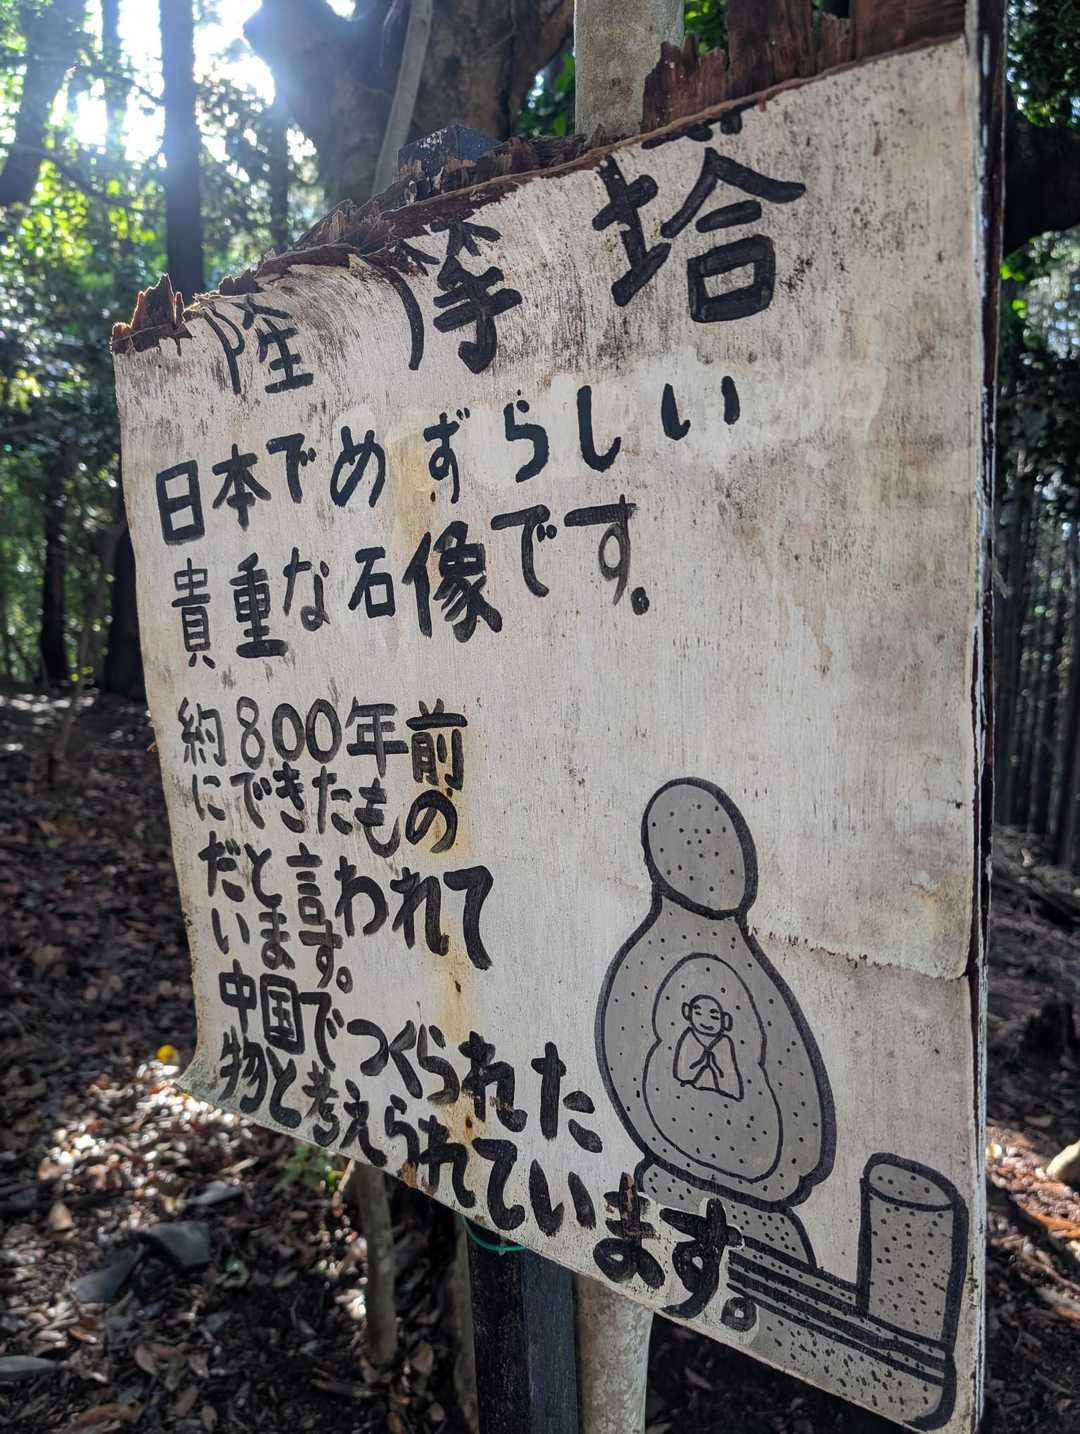 薩摩塔
日本でめずらしい
貴重な石像です.
約800年前
にできたもの
だと言われて
います。
中国でつくられた
物と考えられています。